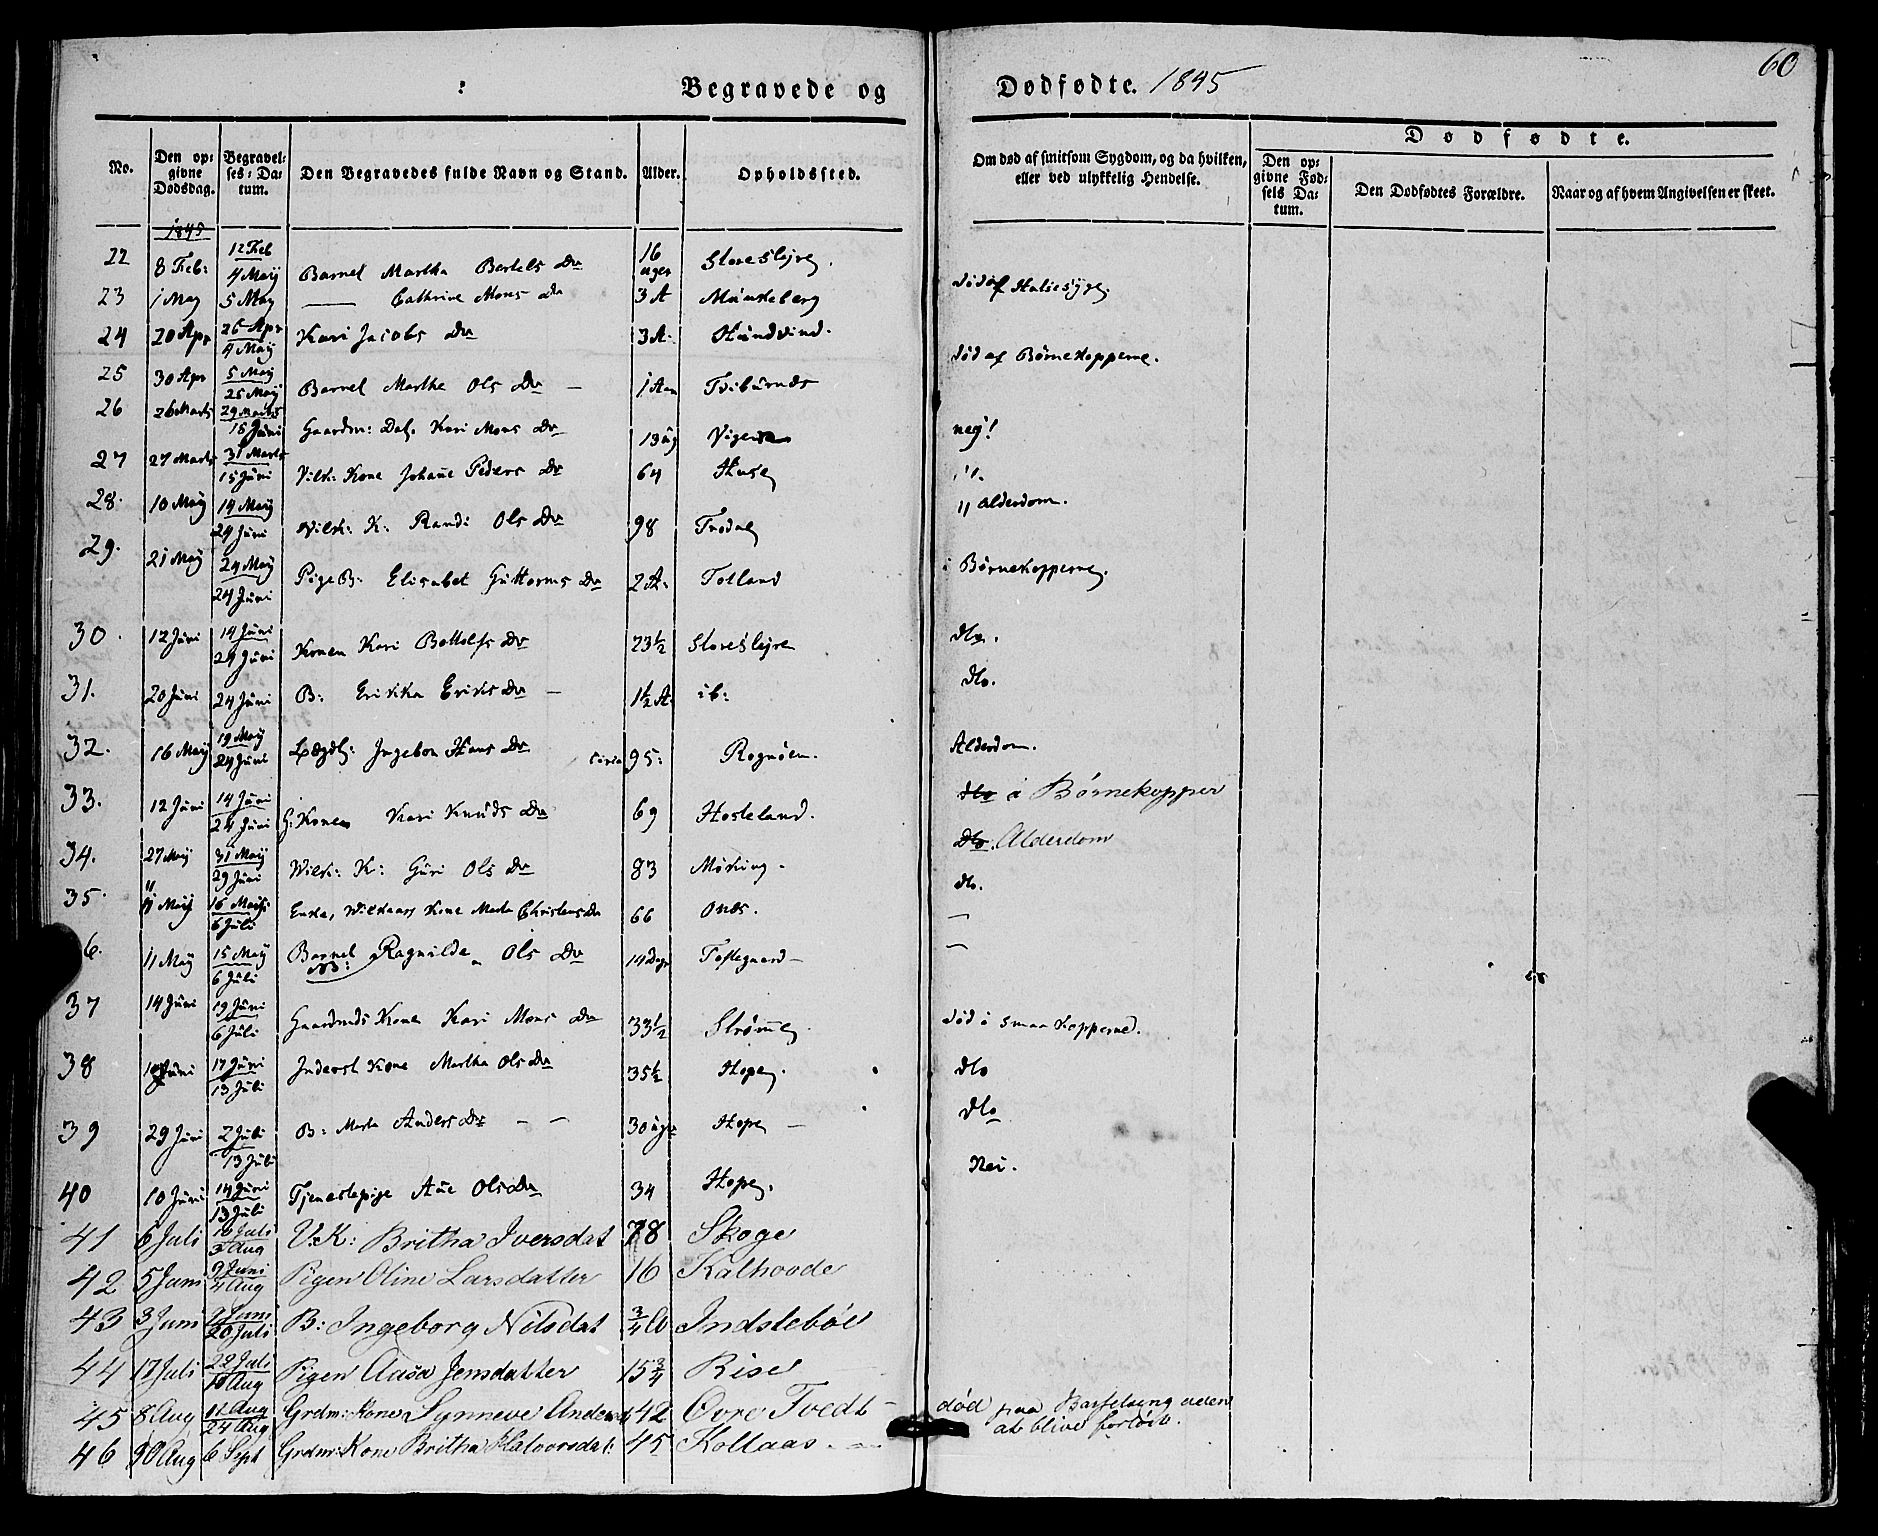 60
Begravede og Dødfødte. 1845
No. Den opgivne Dødsdag. Begravelses-Datum. Den Begravedes fulde Navn og Stand. Alder. Opholdssted. Om død af smitsom Sygdom, og da hvilken, eller ved ulykkelig Hendelse. Dødfødte. Den opgivne Fødsels Datum. Den Dødfødtes Forældre. Naar og af hvem Angivelsen er skeet.
1845
22 8 Feb: 12 Feb 4 Maij Barnet Martha Bertels Dr 16 uger Storeslejre.
23 1 May 5 May — Cathrine Mons Dr 3 A Munkeberg død af Halsesyge.
24 20 Apr 26 Apr 4 Maij Kari Jacobs Dr 3 A. Hundvind.
25 30 Apr 5 Maij 25 Maij Barnet Marthe Ols Dr — 1 Aar død af Børnekopperne.
26 26 Marts 29 Marts 15 Juni Gaardm: Kari Mons Dr 13 ug nej!
27 27 Marts 31 Marts 15 Juni Vilk: Kone Johane Peders Dr 64 Huse "
28. 10 Maij 14 Maij 24 Juni Vilk: K: Randi Ols Dr 98 " Alderdom.
29. 21 Maij 24 Maij 24 Juni Pige B: Elisabet Guttorms Dr 2 A. Tolland i Børnekopperne.
30. 12 Juni 14 Juni 24 Juni Konen Kari Bottolfs Dr 23½ Storeslejre dto.
31. 20 Juni 24 Juni B: Erikka Eriks Dr — 1½ A ib: dto.
32. 16 Maij 19 Maij 24 Juni Lægdl: Ingebor Hans Dr circa 95: Rognøen. Alderdom.
33. 12 Juni 14 Juni 24 Juni G: Konen Kari Knuds Dr 69 Hosteland. dto i Børnekopper
34. 27 Maij 31 Maij 29 Juni Vilk: K: Guri Ols Dr 83 Møking. dto. Alderdom
35. 11 May 16 Marts 6 Juli Enke, Vilkaars Kone Marta Christens Dr 66 Onæs. dto.
6. 11 Maij 15 Maij 6 Juli Barnet Ragnilde Ols Dr 14 Dage Toftegaard — —
37 14 Juni 19 Juni 6 Juli Gaardmds Kone Kari Mons Dr 33½ Strømme død i Smaakopperne.
38 Juni 17 Juni 13 Juli Inderst Kone Martha Ols Dr 35½ Hope dto
39 29 Juni 2 Juli 13 Juli B: Marta Anders Dr — — 30 uger Hope — dto
40 10 Juni 14 Juni 13 Juli Tjenestepige Ane Ols Dr 34 Hope. Nei.
41 6 Juli 10 Juli 3 Aug V.K: Britha Iversdat 78 Skoge
42 5 Juni 9 Juni 4 Aug Pigen Oline Larsdatter 16 Kalhovde
43 3 Juni 9 Juni 20 Juli B: Ingeborg Nilsdat ¾ Indstebøe
44 17 Juli 22 Juli 10 Aug Pigen Aasa Jensdatter 15¾ Rise
45 8 Aug 11 Aug 24 Aug Grdm: Kone Synneve Andersd 42 Øvre Tvedt — død paa Barselseng uden
at blive forløst.
46 30 Aug 6 Sept Grdm: Kone Britha Halvorsdat: 45 Kollaas